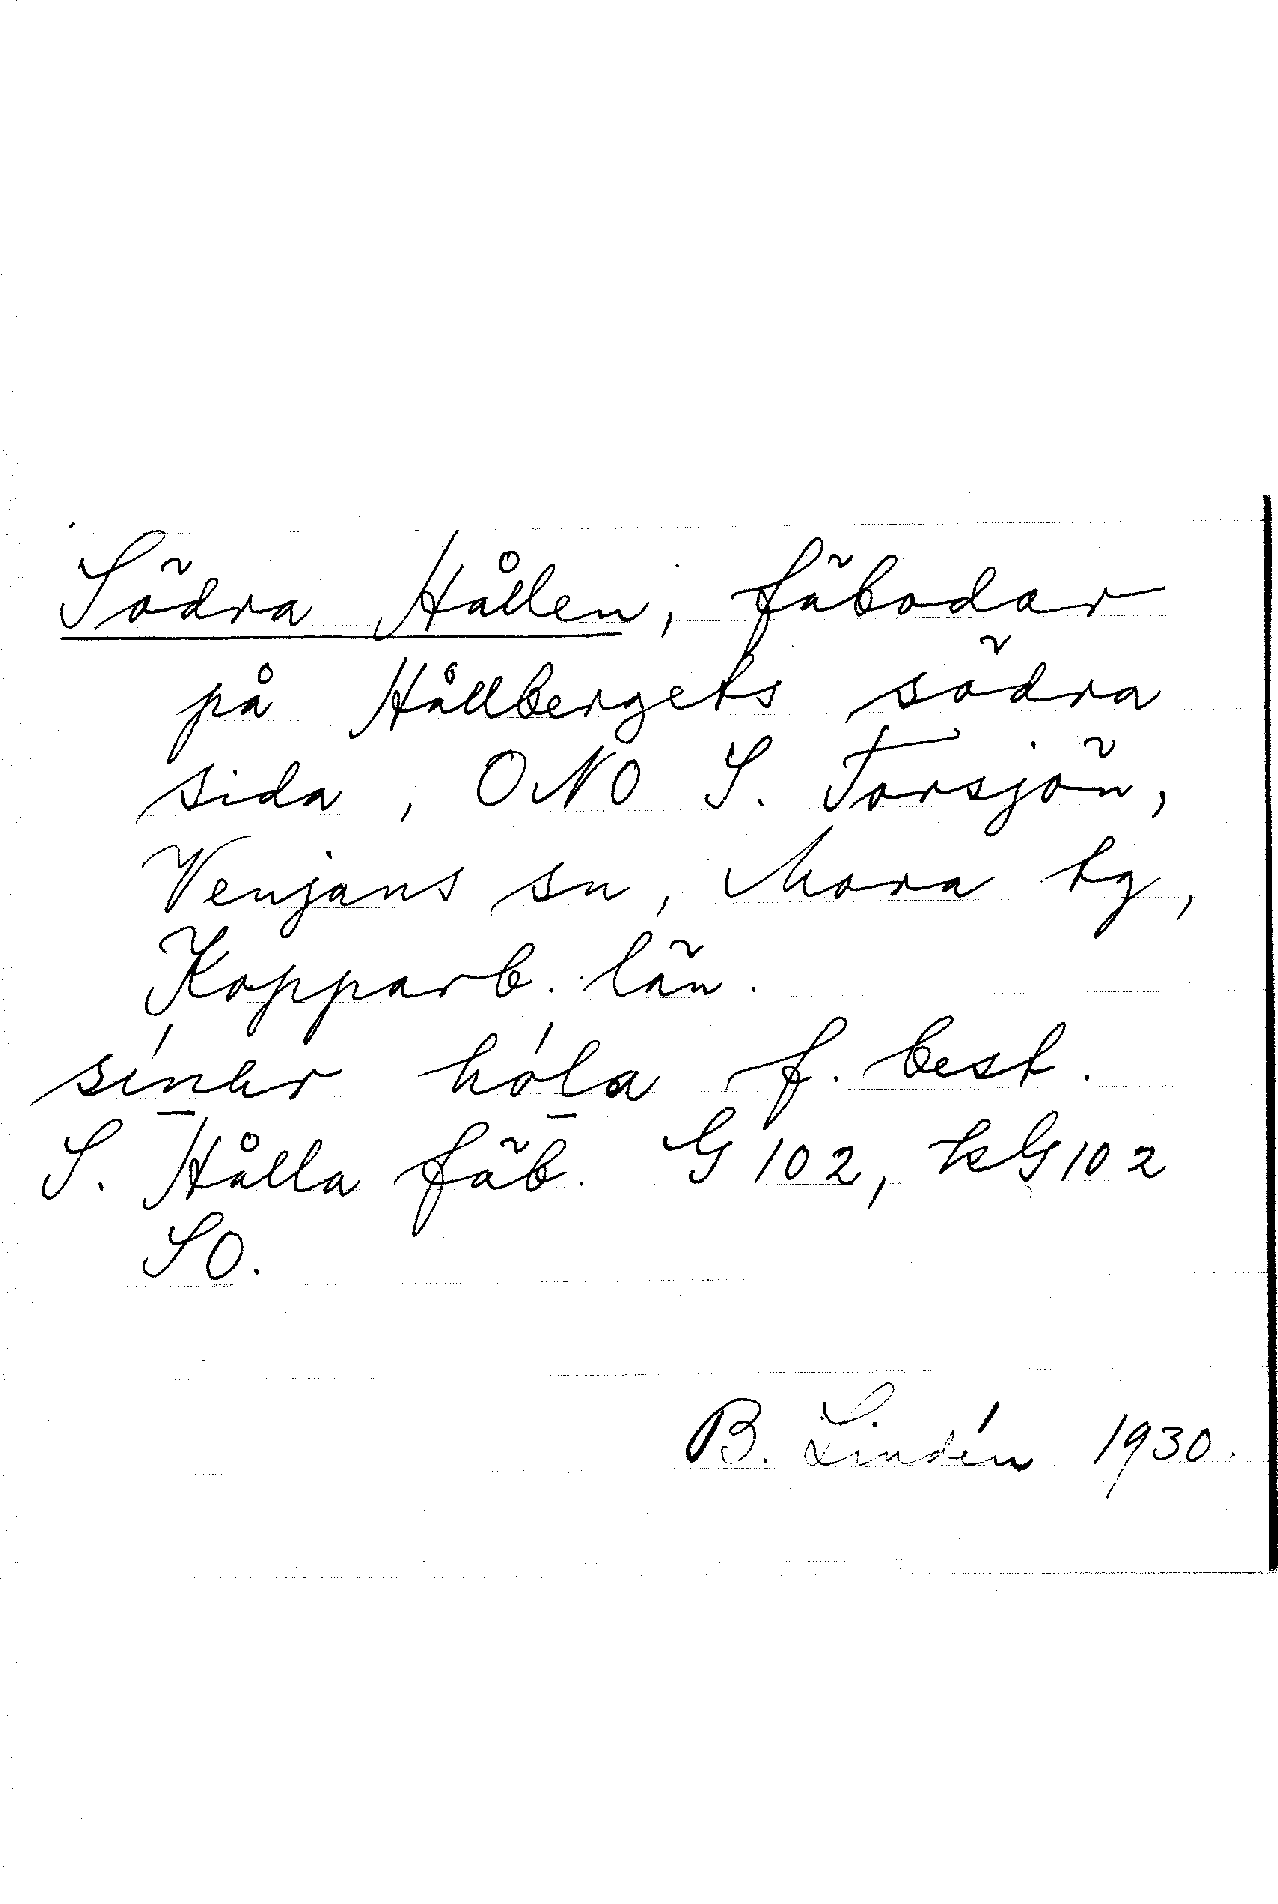 Södra Hållen, fäbodar
på Hållbergets södra
sida, ONO S. Torsjön,
Venjans sn, Mora tg,
Kopparb. län.
hóla f. best.
S. Hålla fäb. G 102, kG 102
SO.
B. Lindén 1930.